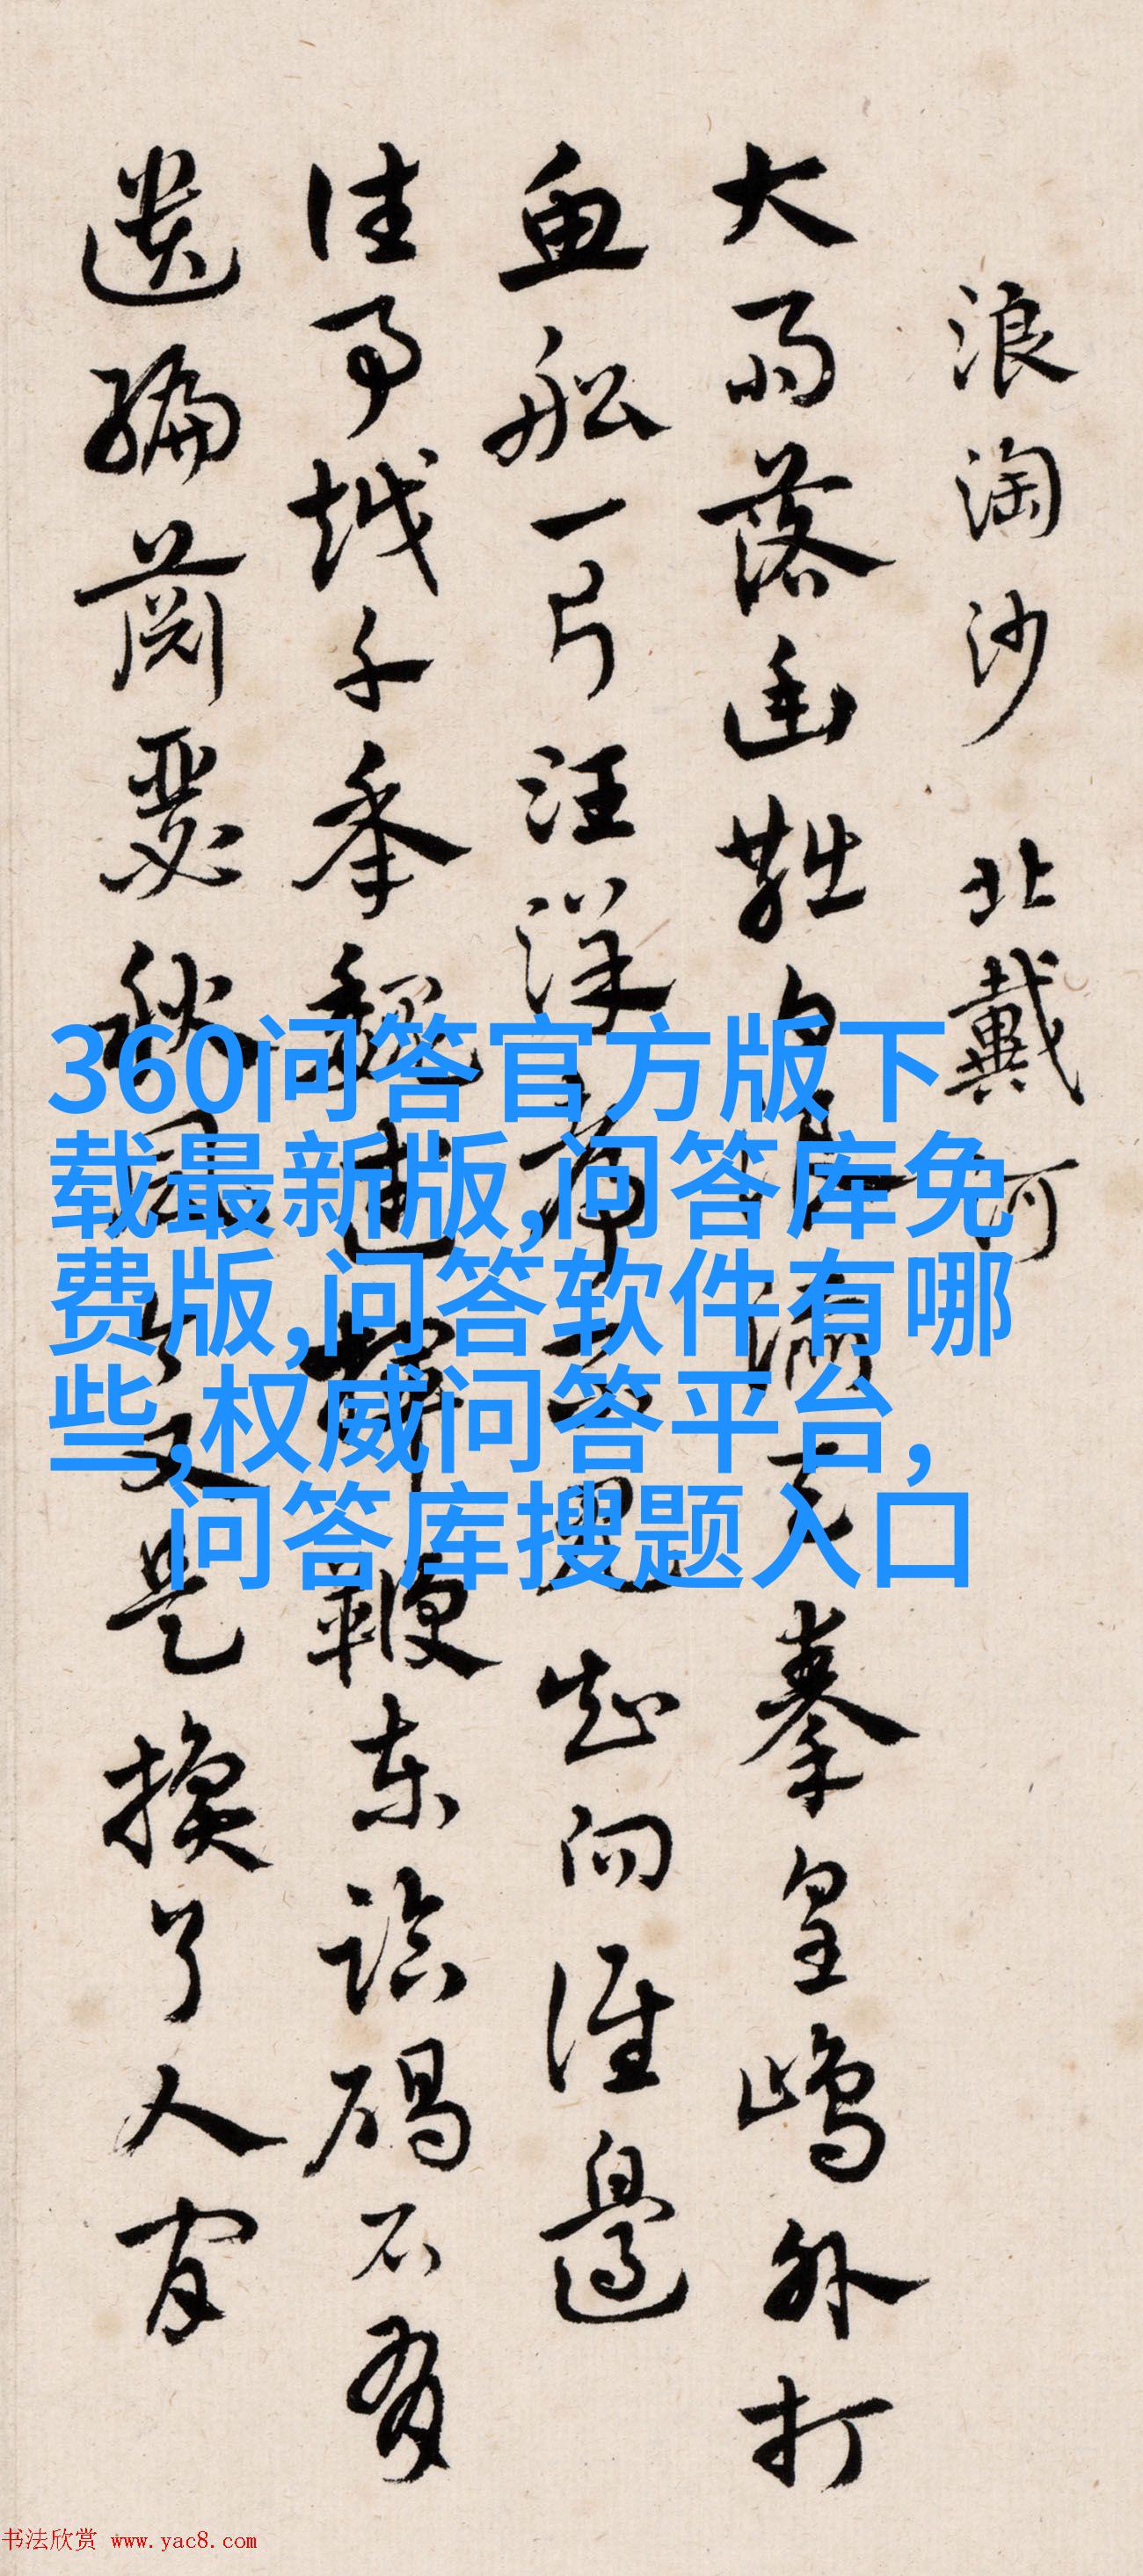 浪淘沙 北戴河
大雨落幽燕白浪滔天秦皇島外打
魚船一片汪洋都不見知向誰邊
往事越千年魏武揮鞭東臨碣石有
遺編蕭瑟秋風今又是換了人間
360问答官方版下
载最新版,问答库免
费版,问答软件有哪
些,权威问答平台,
问答库搜题入口
书法欣赏 www.yac8.com